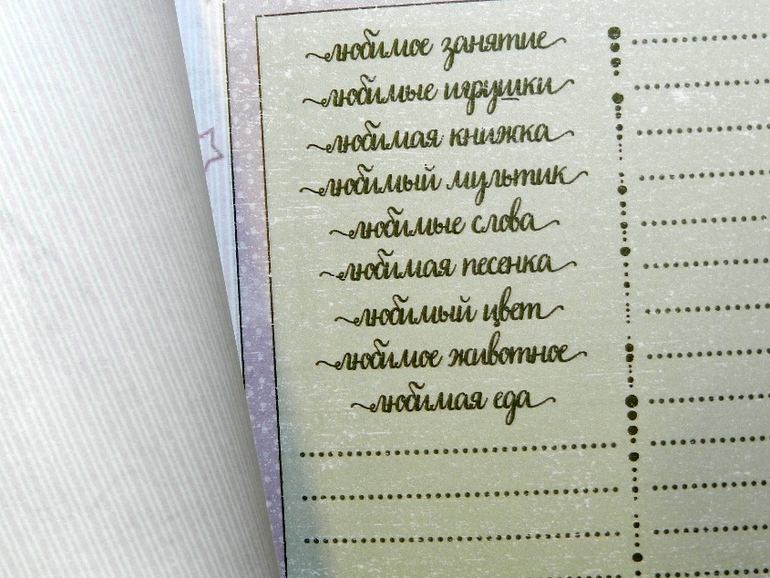 любимое занятие
любимые игрушки
любимая книжка
любимый мультик
любимые слова
любимая песенка
любимый цвет
любимое животное
любимая еда